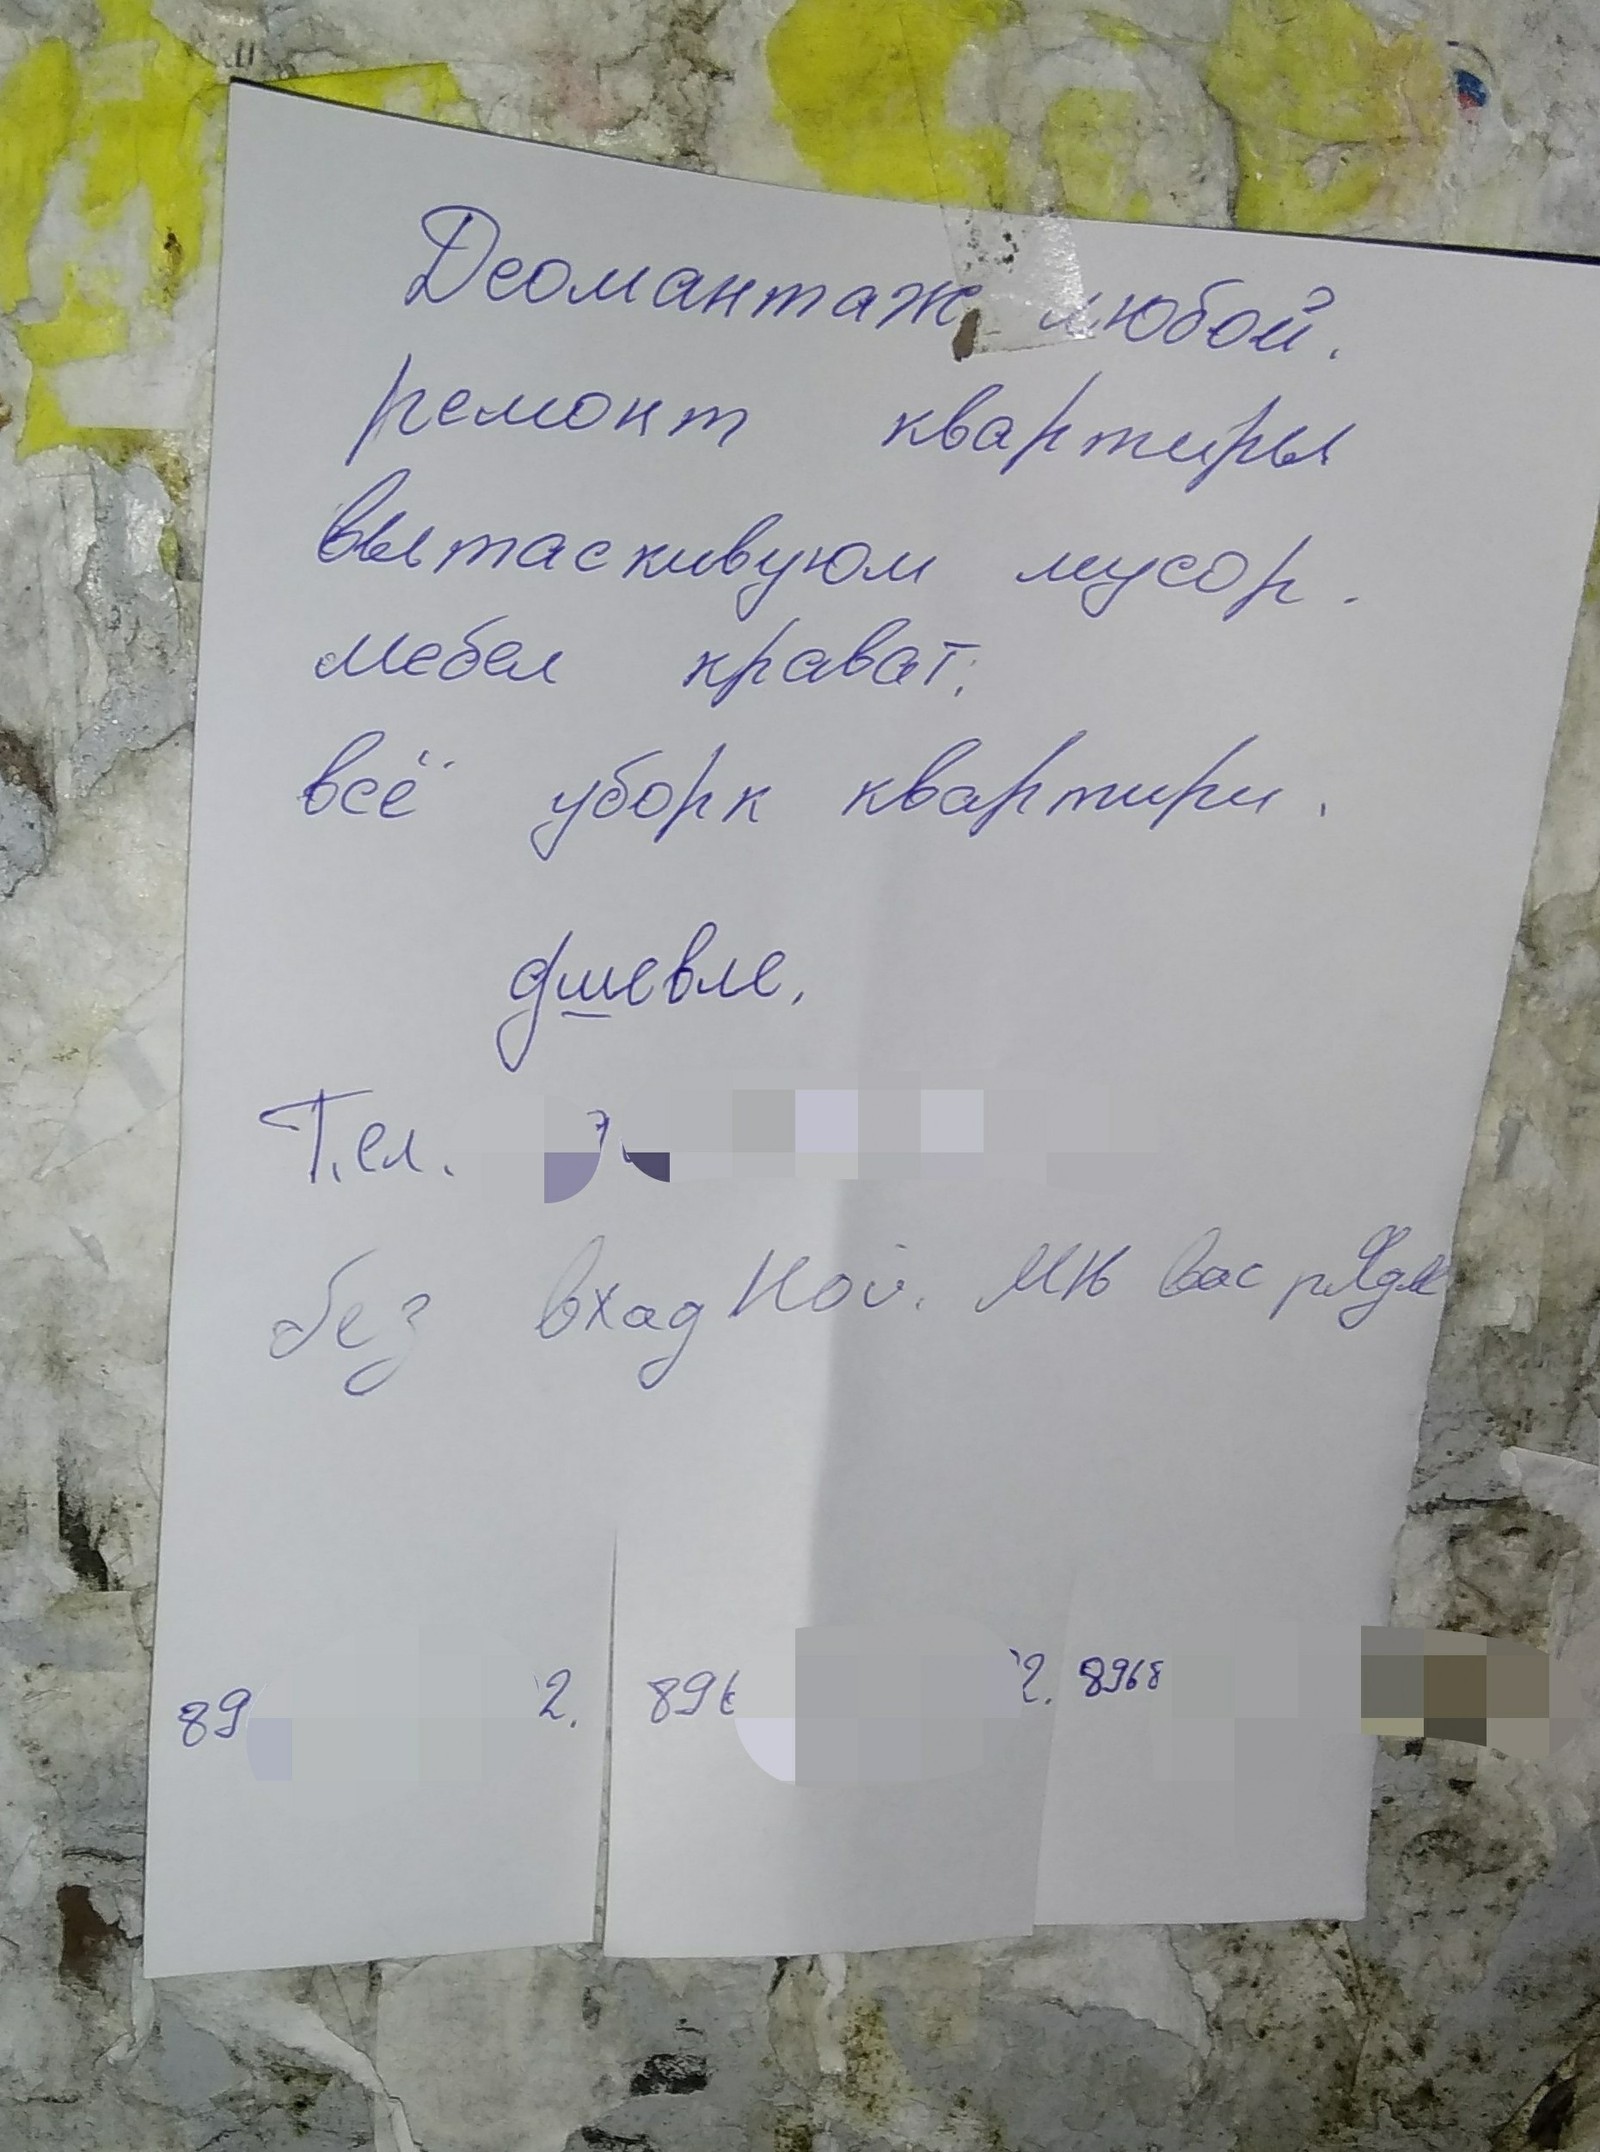 Деомантаж любой.
ремонт квартиры
вытаскивуюм мусор.
мебел крават.
всё уборк квартири.
дшевле.
Т.ел.
без вхадной. мн вас рядм
89 2. 896 2. 8968